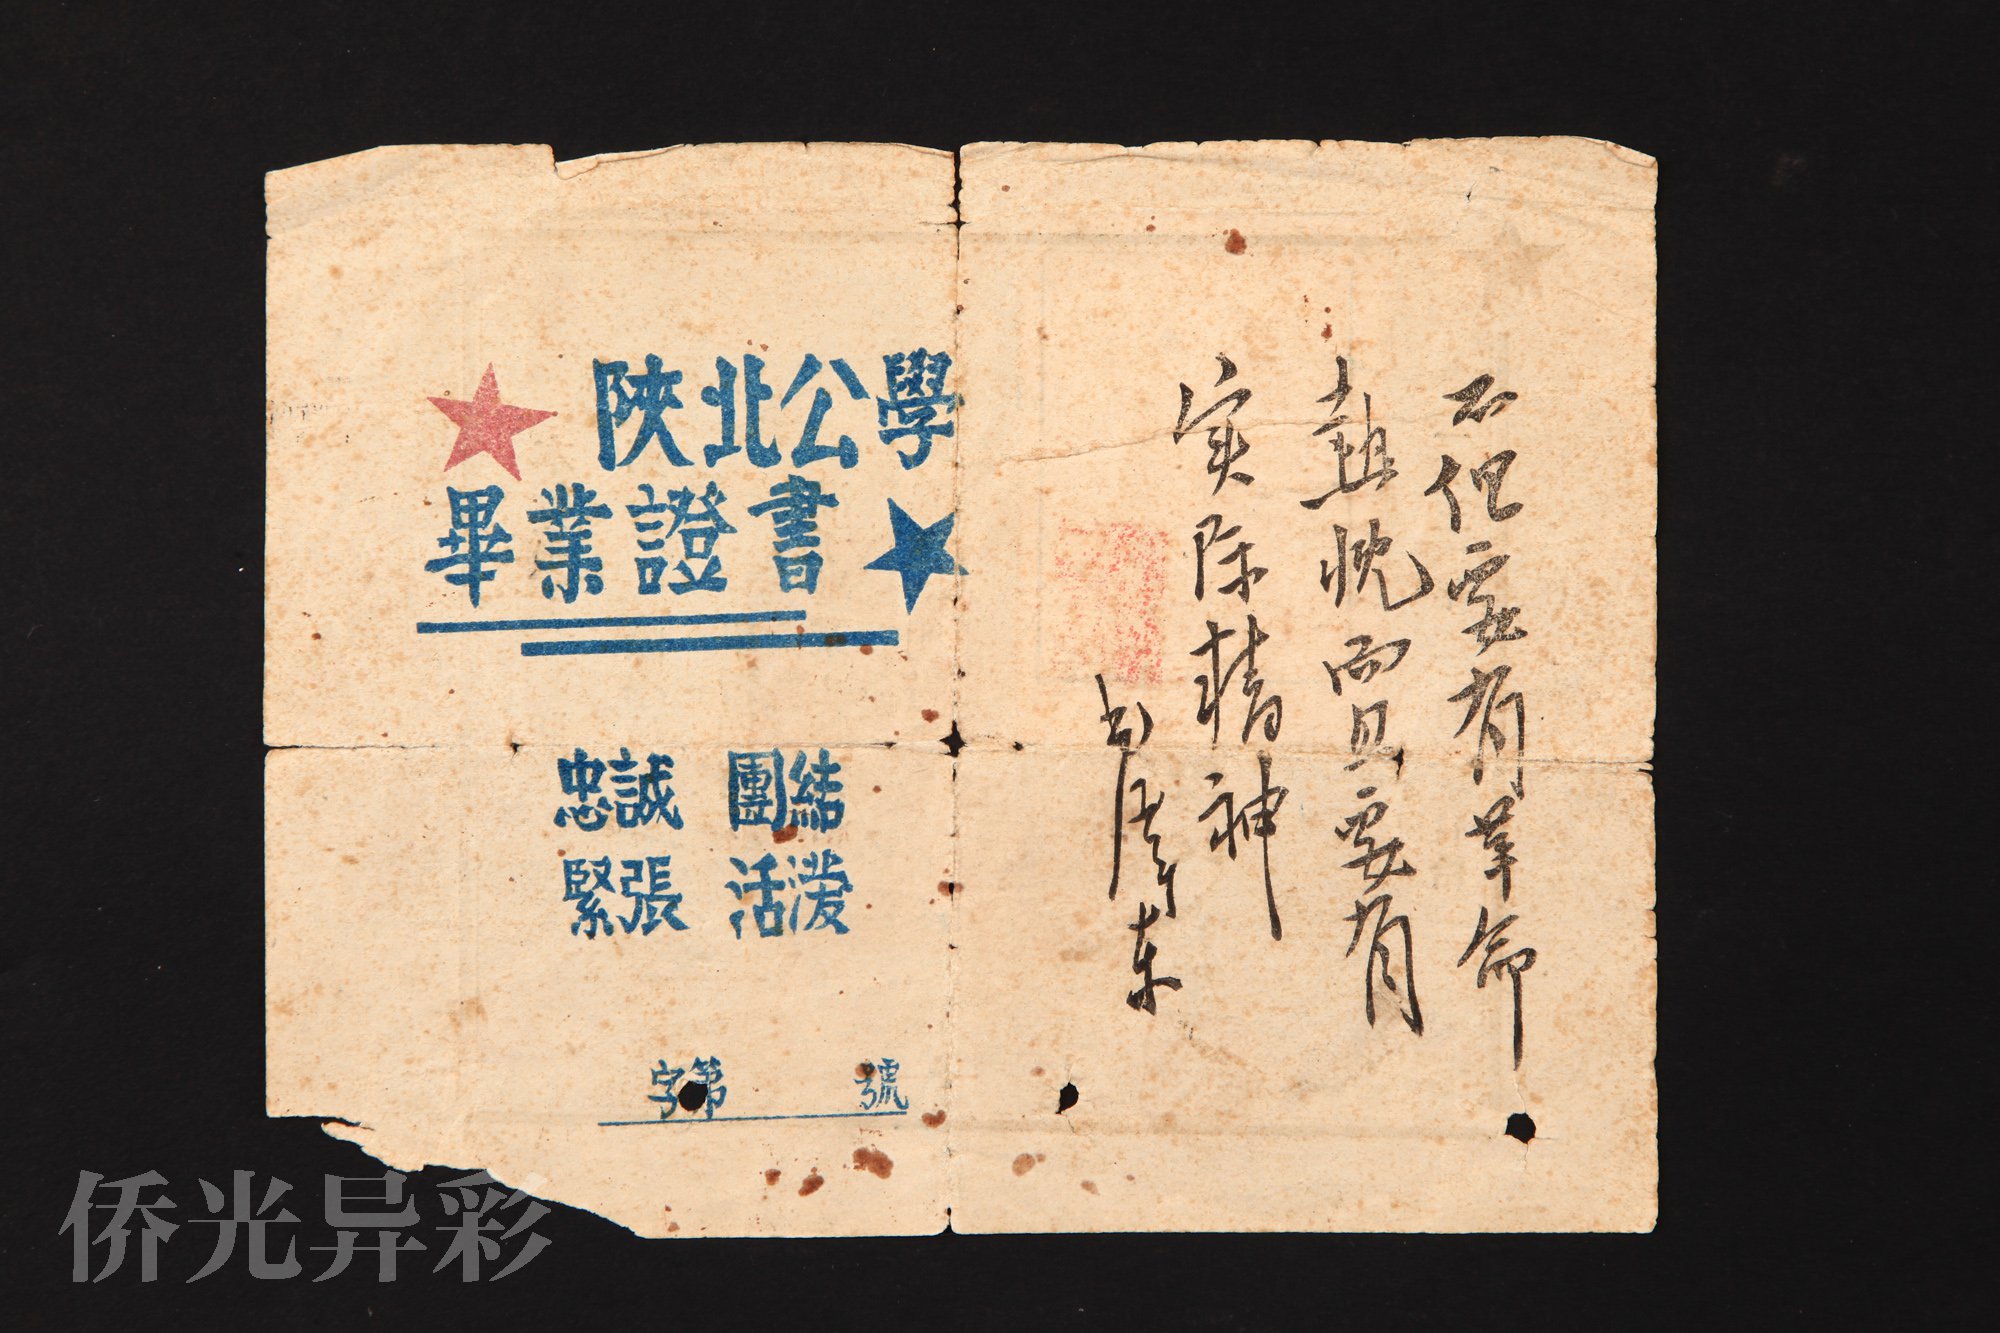 陝北公學
畢業證書
忠誠 團結
緊張 活潑
字第 號
不但要有革命
热忱而且要有
实际精神
毛泽东
侨光异彩